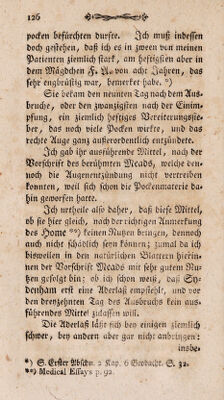 126
pocken befürchten durfte. Ich muß indessen
doch gestehen, daß ich es in zween von meinen
Patienten ziemlich stark, am heftigsten aber in
dem Mägdchen F. A. von acht Jahren, das
sehr engbrüstig war, bemerket habe. *)
Sie bekam den neunten Tag nach dem Aus-
bruche, oder den zwanzigsten nach der Einim-
pfung, ein ziemlich heftiges Vereiterungsfie-
ber, das noch viele Pocken wirkte, und das
rechte Auge ganz ausserordentlich entzündete.
Ich gab ihr ausführende Mittel, nach der
Vorschrift des berühmten Meads, welche den-
noch die Augenentzündung nicht vertreiben
konnten, weil sich schon die Pockenmaterie da-
hin geworfen hatte.
Ich urtheile also daher, daß diese Mittel,
ob sie hier gleich, nach der richtigen Anmerkung
des Home **) keinen Nutzen bringen, dennoch
auch nicht schädlich seyn können; zumal da ich
bisweilen an den natürlichen Blattern hierin-
nen der Vorschrift Meads mit sehr gutem Nu-
tzen gefolgt bin: ob ich schon weiß, daß Sy-
denham erst eine Aderlaß empfiehlt, und vor
den dreyzehnten Tag des Ausbruchs kein aus-
führendes Mittel zulassen will.
Die Aderläß läßt sich bey einigen ziemlich
schwer, bey andern aber gar nicht anbringen:
insbe-
*) S. Erster Abschn. 2 Kap. 6 Beobacht. S. 32.
**) Medical Essays p. 92.